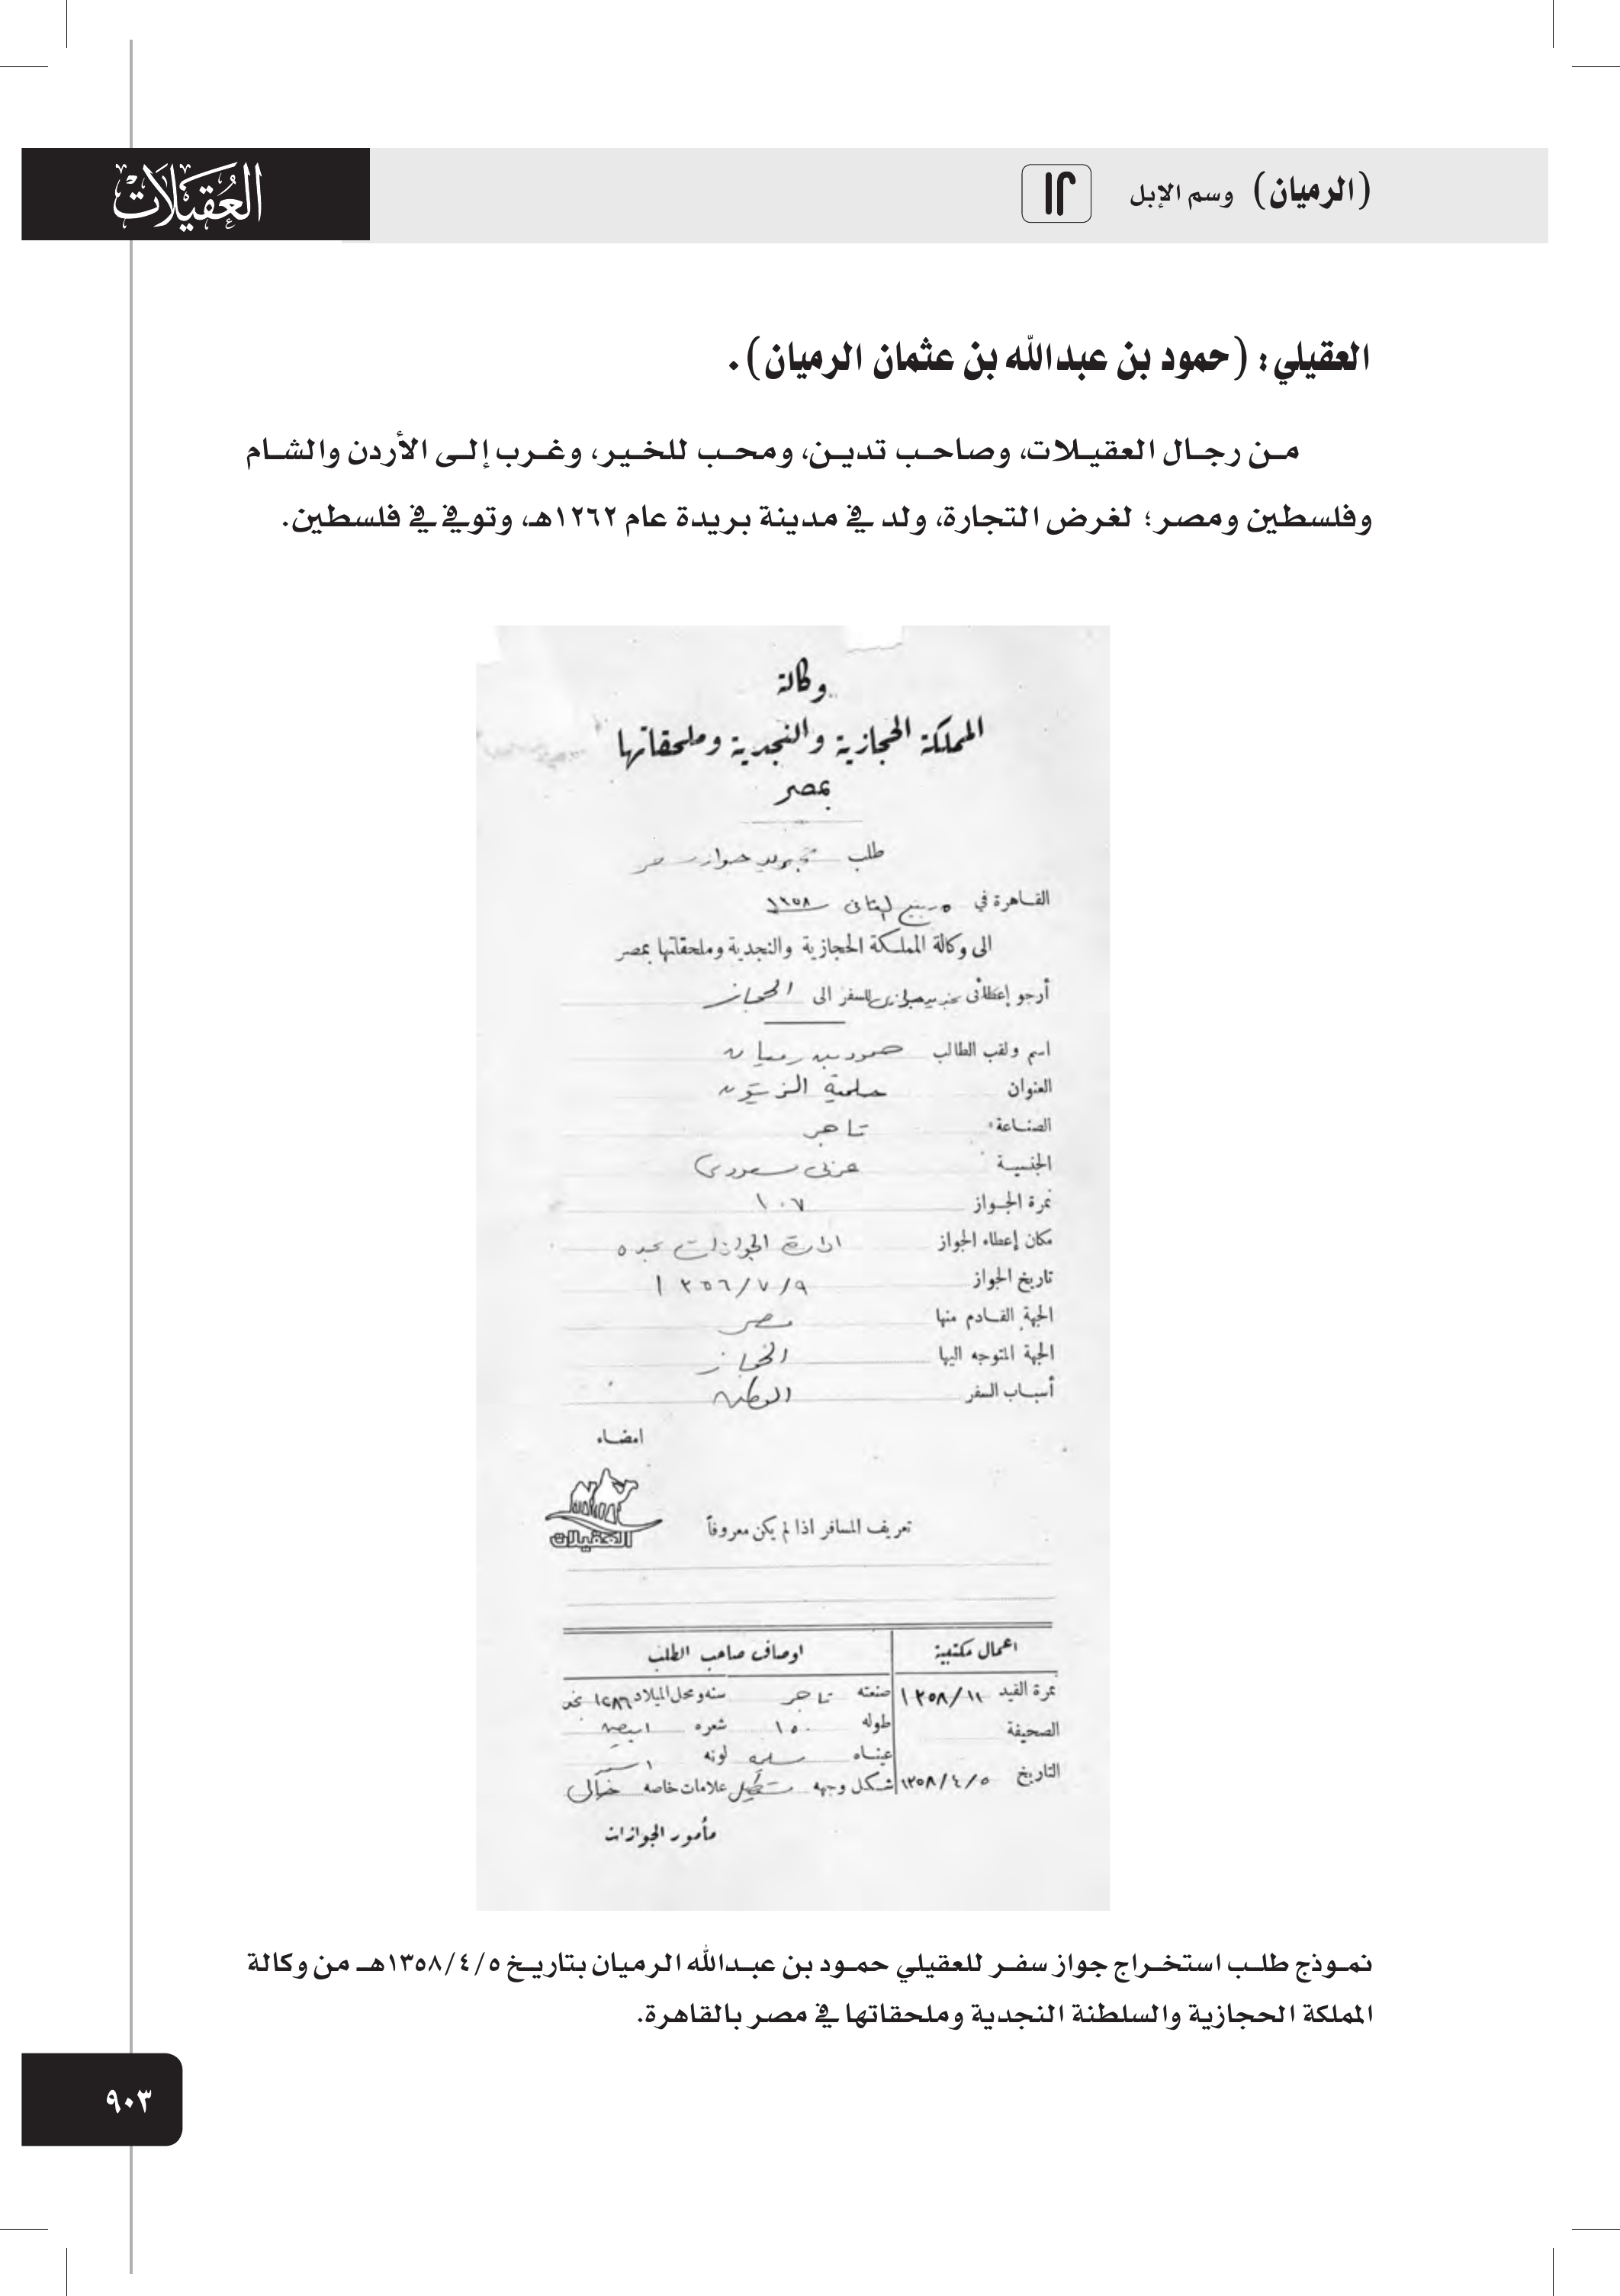 (الرميان) وسم الإبل
العقيلات
العقيلي: (حمود بن عبدالله بن عثمان الرميان).
من رجال العقيلات، وصاحب تدين، ومحب للخير، وغرب إلى الأردن والشام
وفلسطين ومصر؛ لغرض التجارة، ولد في مدينة بريدة عام ١٢٦٢هـ، وتوفي في فلسطين.
وكالة
المملكة الحجازية والنجدية وملحقاتها
بمصر
طلب تجديد جواز سفر
القاهرة في ٥ ربيع الثاني ١٣٥٨
الى وكالة المملكة الحجازية والنجدية وملحقاتها بمصر
أرجو إعطائى تجديد جوازى للسفر الى الحجاز
اسم ولقب الطالب حمود بن رميان
العنوان حلمية الزيتون
الصناعة تاجر
الجنسية عربى سعودى
نمرة الجواز ١٠٧
مكان إعطاء الجواز ادارة الجوازات بجده
تاريخ الجواز ١٣٥٦/٧/٩
الجهة القادم منها مصر
الجهة المتوجه اليها الحجاز
أسباب السفر الوطن
امضاء
العقيلات
تعريف المسافر اذا لم يكن معروفاً
اعمال مكتبية اوصاف صاحب الطلب
نمرة القيد ١٣٥٨/١١ صنعته تاجر سنه ومحل الميلاد ١٢٨٦ نجد
الصحيفة طوله ١٥٠ شعره ابيض
عيناه لونه اسمر
التاريخ ١٣٥٨/٤/٥ شكل وجهه مستطيل علامات خاصه خالى
مأمور الجوازات
نموذج طلب استخراج جواز سفر للعقيلي حمود بن عبدالله الرميان بتاريخ ١٣٥٨/٤/٥هـ من وكالة
المملكة الحجازية والسلطنة النجدية وملحقاتها في مصر بالقاهرة.
٩٠٣